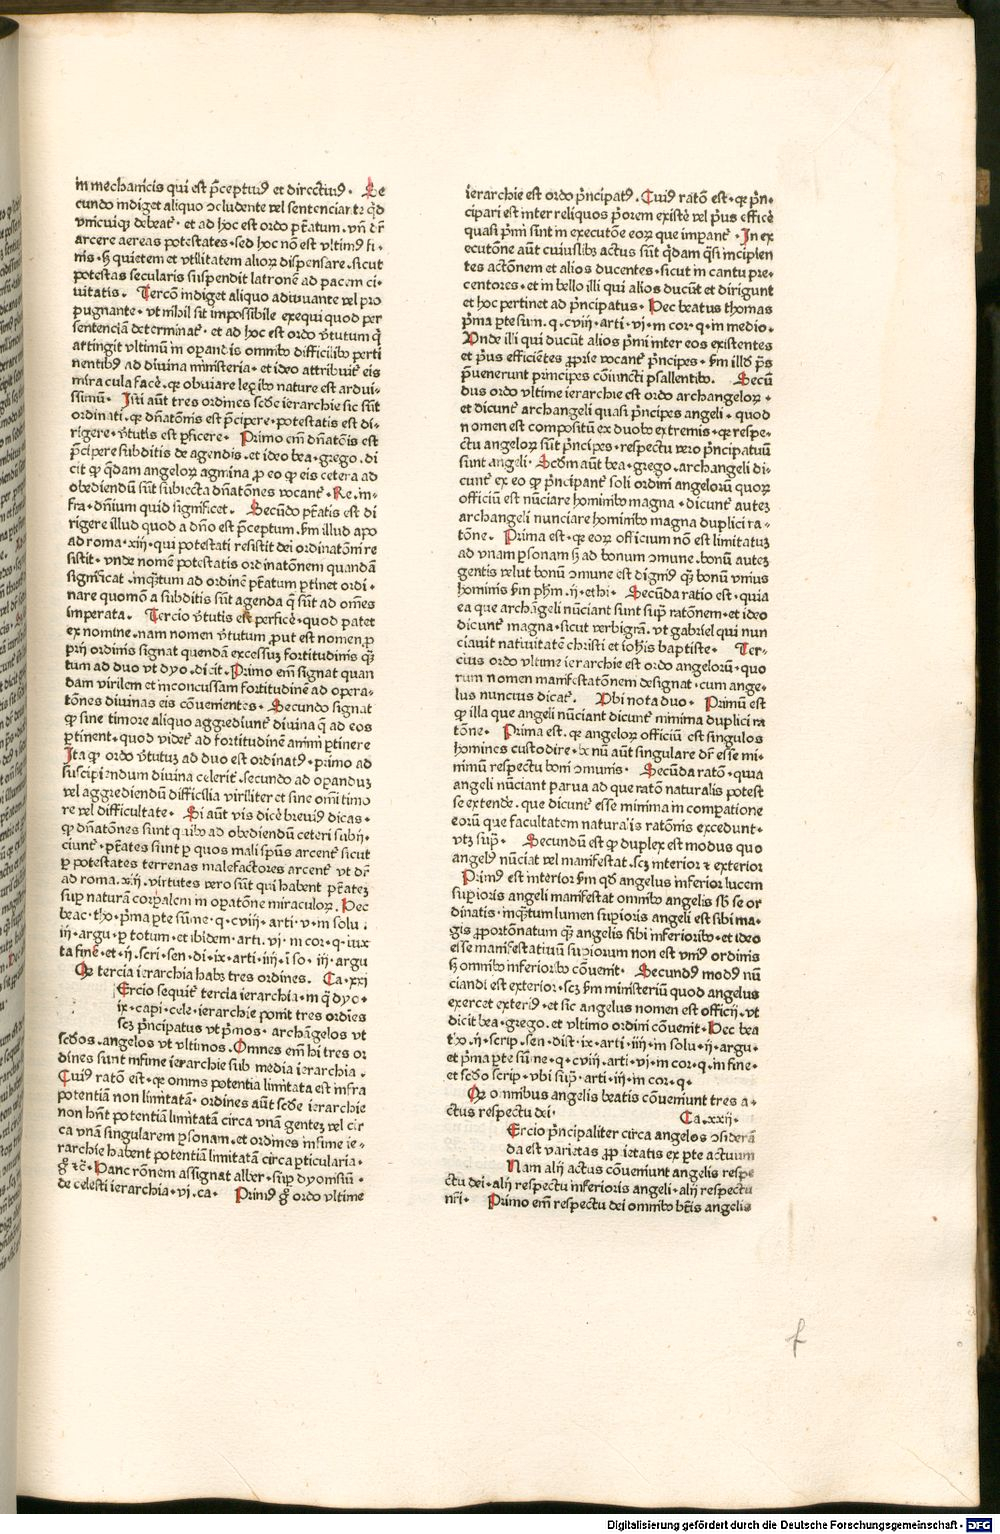 in mechanicis qui est p̄ceptiuꝰ et directiuꝰ. Se
cundo indiget aliquo ↄcludente vel sentenciante qͩ
vnicuiqꝫ debeat᷑. et ad hoc est ordo p̄tatum. vn̄ dr̄
arcere aereas potestates. sed hoc nō est vltimꝰ fi-
nis. sꝫ quietem et vtilitatem alioꝝ dispensare. sicut
potestas secularis suspendit latronē ad pacem ci-
uitatis. Tercō indiget aliquo adiuuante vel pro
pugnante. vt nihil sit impossibile exequi quod per
sentenciā determinat᷑. et ad hoc est ordo v̄tutum q̄
attingit vltimū in operandis omnibꝰ difficilibꝰ perti
nentibꝰ ad diuina ministeria. et ideo attribuit᷑ eis
miracula facē. qꝛ obuiare legibꝰ nature est ardui-
ssimū. Isti aūt tres ordines scd̄e ierarchie sic sūt
ordinati. qꝛ dn̄atōnis est p̄cipere. potestatis est di-
rigere. v̄tutis est ꝑficere. Primo em̄ dn̄atōis est
p̄cipere subditis de agendis. et ideo bea. grego. di
cit ꝙ q̄dam angeloꝝ agmina ꝓ eo ꝙ eis cetera ad
obediendū sūt subiecta dn̄atōnes vocant᷑. Re. in-
fra. dn̄ium quid significet. Secūdo p̄tatis est di
rigere illud quod a dn̄o est p̄ceptum. fm̄ illud apo
ad roma. xiij. qui potestati resistit dei ordinatōni re
sistit. vnde nomē potestatis ordinatōnem quandā
significat. inqꝫtum ad ordinē p̄tatum ꝑtinet ordi-
nare quomō a subditis sūt agenda q̄ sūt ad om̄es
imperata. Tercio v̄tutis est perficē. quod patet
ex nomine. nam nomen v̄tutum ꝓut est nomen ꝓ
prij ordinis signat quendā excessuꝫ fortitudinis qꝫ
tum ad duo vt dyo. dicit. Primo em̄ signat quan
dam virilem et inconcussam fortitudinē ad opera-
tōnes diuinas eis cōuenientes. Secundo signat
ꝙ sine timore aliquo aggrediunt᷑ diuina q̄ ad eos
ꝑtinent. quod videt᷑ ad fortitudinē animi ꝑtinere
Ita ꝙ ordo v̄tutuꝫ ad duo est ordinatꝰ. primo ad
suscipiendum diuina celerit᷑. secundo ad operanduꝫ
vel aggrediendū difficilia viriliter et sine om̄i timo
re vel difficultate. Si aūt vis dicē breuiꝰ dicas.
ꝙ dn̄atōnes sunt quibꝰ ad obediendū ceteri subij-
ciunt᷑. p̄tates sūt ꝑ quos mali sp̄us arcent᷑ sicut
ꝑ potestates terrenas malefactores arcent᷑ vt dr̄
ad roma. xij. virtutes vero sūt qui habent p̄tateꝫ
suꝑ naturā corꝑalem in oꝑatōne miraculoꝝ. Hec
beac. tho. p̄ma ꝑte sūme. q. cviij. arti. v. in solu.
iij. argu. ꝑ totum. et ibidem. arti. vj. in cor. q. iux
ta finē. et. ij. scri. sen. di. ix. arti. iij. i so. iij. argu
Qꝛ tercia ierarchia habꝫ tres ordines. Ca. xxi
Ercio sequit᷑ tercia ierarchia. in q̄ dyo.
ix. capi. cele. ierarchie ponit tres ordīes
scꝫ p̄ncipatus vt p̄mos. archāgelos vt
scd̄os. angelos vt vltimos. Omnes em̄ hi tres or
dines sunt infime ierarchie sub media ierarchia.
Cuiꝰ ratō est. qꝛ omnis potentia limitata est infra
potentiā non limitatā. ordines aūt scd̄e ierarchie
non hn̄t potentiā limitatā circa vnā genteꝫ vel cir
ca vnā singularem ꝑsonam. et ordines infime ie-
rarchie habent potentiā limitatā circa ꝑticularia.
gͦ ⁊c̄. Hanc rōnem assignat alber. suꝑ dyonisiū.
de celesti ierarchia. vj. ca. Primꝰ gͦ ordo vltime
ierarchie est ordo p̄ncipatꝰ. Cuiꝰ ratō est. qꝛ p̄n-
cipari est inter reliquos p̄orem existē vel p̄us efficē
quasi p̄mi sint in executōe eoꝝ que imꝑant᷑. In ex
ecutōne aūt cuiuslibꝫ actus sūt q̄dam q̄si incipien
tes actōnem et alios ducentes. sicut in cantu pre-
centores. et in bello illi qui alios ducūt et dirigunt
et hoc pertinet ad p̄ncipatus. Hec beatus thomas
p̄ma ꝑte sum. q. cviij. arti. vj. in cor. q. in medio.
Vnde illi qui ducūt alios p̄mi inter eos existentes
et p̄us efficiētes ꝓprie vocant᷑ p̄ncipes. fm̄ illd̄ p̄s
p̄uenerunt principes cōiuncti psallentibꝰ. Secū
dus ordo vltime ierarchie est ordo archangeloꝝ.
et dicunt᷑ archangeli quasi p̄ncipes angeli. quod
nomen est compositū ex duobꝰ extremis. qꝛ respe-
ctu angeloꝝ sūt p̄ncipes. respectu vero p̄ncipatuū
sunt angeli. Scd̄m aūt bea. grego. archangeli di-
cunt᷑ ex eo ꝙ p̄ncipant᷑ soli ordini angelorū quoꝝ
officiū est nūciare hominibꝰ magna. dicunt᷑ auteꝫ
archangeli nunciare hominibꝰ magna duplici ra-
tōne. Prima est. qꝛ eoꝝ officium nō est limitatuꝫ
ad vnam ꝑsonam sꝫ ad bonum ↄmune. bonū auteꝫ
gentis velut bonū ↄmune est digniꝰ qꝫ bonū vnius
hominis fm̄ ph̄m. ij. ethi. Secūda ratio est. quia
ea que archāgeli nūciant sunt sup̄ ratōnem. et ideo
dicunt᷑ magna. sicut verbigrā. vt gabriel qui nun
ciauit natiuitatē christi et ioh̄is baptiste. Ter-
cius ordo vltime ierarchie est ordo angelorū. quo
rum nomen manifestatōnem designat. cum ange-
lus nuncius dicat᷑. Vbi nota duo. Primū est
ꝙ illa que angeli nūciant dicunt᷑ minima duplici ra
tōne. Prima est. qꝛ angeloꝝ officiū est singulos
homines custodire. bonū aūt singulare dr̄ esse mi-
nimū respectu boni ↄmunis. Secūda ratō. quia
angeli nūciant parua ad que ratō naturalis potest
se extende. que dicunt᷑ esse minima in comꝑatione
eorū que facultatem naturalis ratōnis excedunt.
vtꝫ sup̄. Secundū est ꝙ duplex est modus quo
angelꝰ nūciat vel manifestat. scꝫ interior ⁊ exterior
Primꝰ est interior fm̄ qd̄ angelus inferior lucem
suꝑioris angeli manifestat omnibꝰ angelis sb̄ se or
dinatis. inqꝫtum lumen suꝑioris angeli est sibi ma-
gis ꝓportōnatum qꝫ angelis sibi inferioribꝰ. et ideo
esse manifestatiuū suꝑiorum non est vniꝰ ordinis
sꝫ omnibꝰ inferioribꝰ cōuenit. Secundꝰ modꝰ nū
ciandi est exterior. scꝫ fm̄ ministeriū quod angelus
exercet exteriꝰ. et sic angelus nomen est officij. vt
dicit bea. grego. et vltimo ordini cōuenit. Hec bea
tho. ij. scrip. sen. dist. ix. arti. iiij. in solu. ij. argu.
et p̄ma ꝑte sū ne. q. cviij. arti. vj. in cor. q. in fine.
et scd̄o scrip. vbi sup̄. arti. iij. in cor. q.
Qꝛ omnibus angelis beatis cōueniunt tres a-
ctus respectu dei. Ca. xxij.
Ercio p̄ncipaliter circa angelos ↄsiderā
da est varietas ꝓprietatis ex ꝑte actuum
Nam alij actus cōueniunt angelis respe
ctu dei. alij respectu inferioris angeli. alij respectu
nr̄i. Primo em̄ respectu dei omnibꝰ bt̄is angelis
f
Digitalisierung gefördert durch die Deutsche Forschungsgemeinschaft - DFG